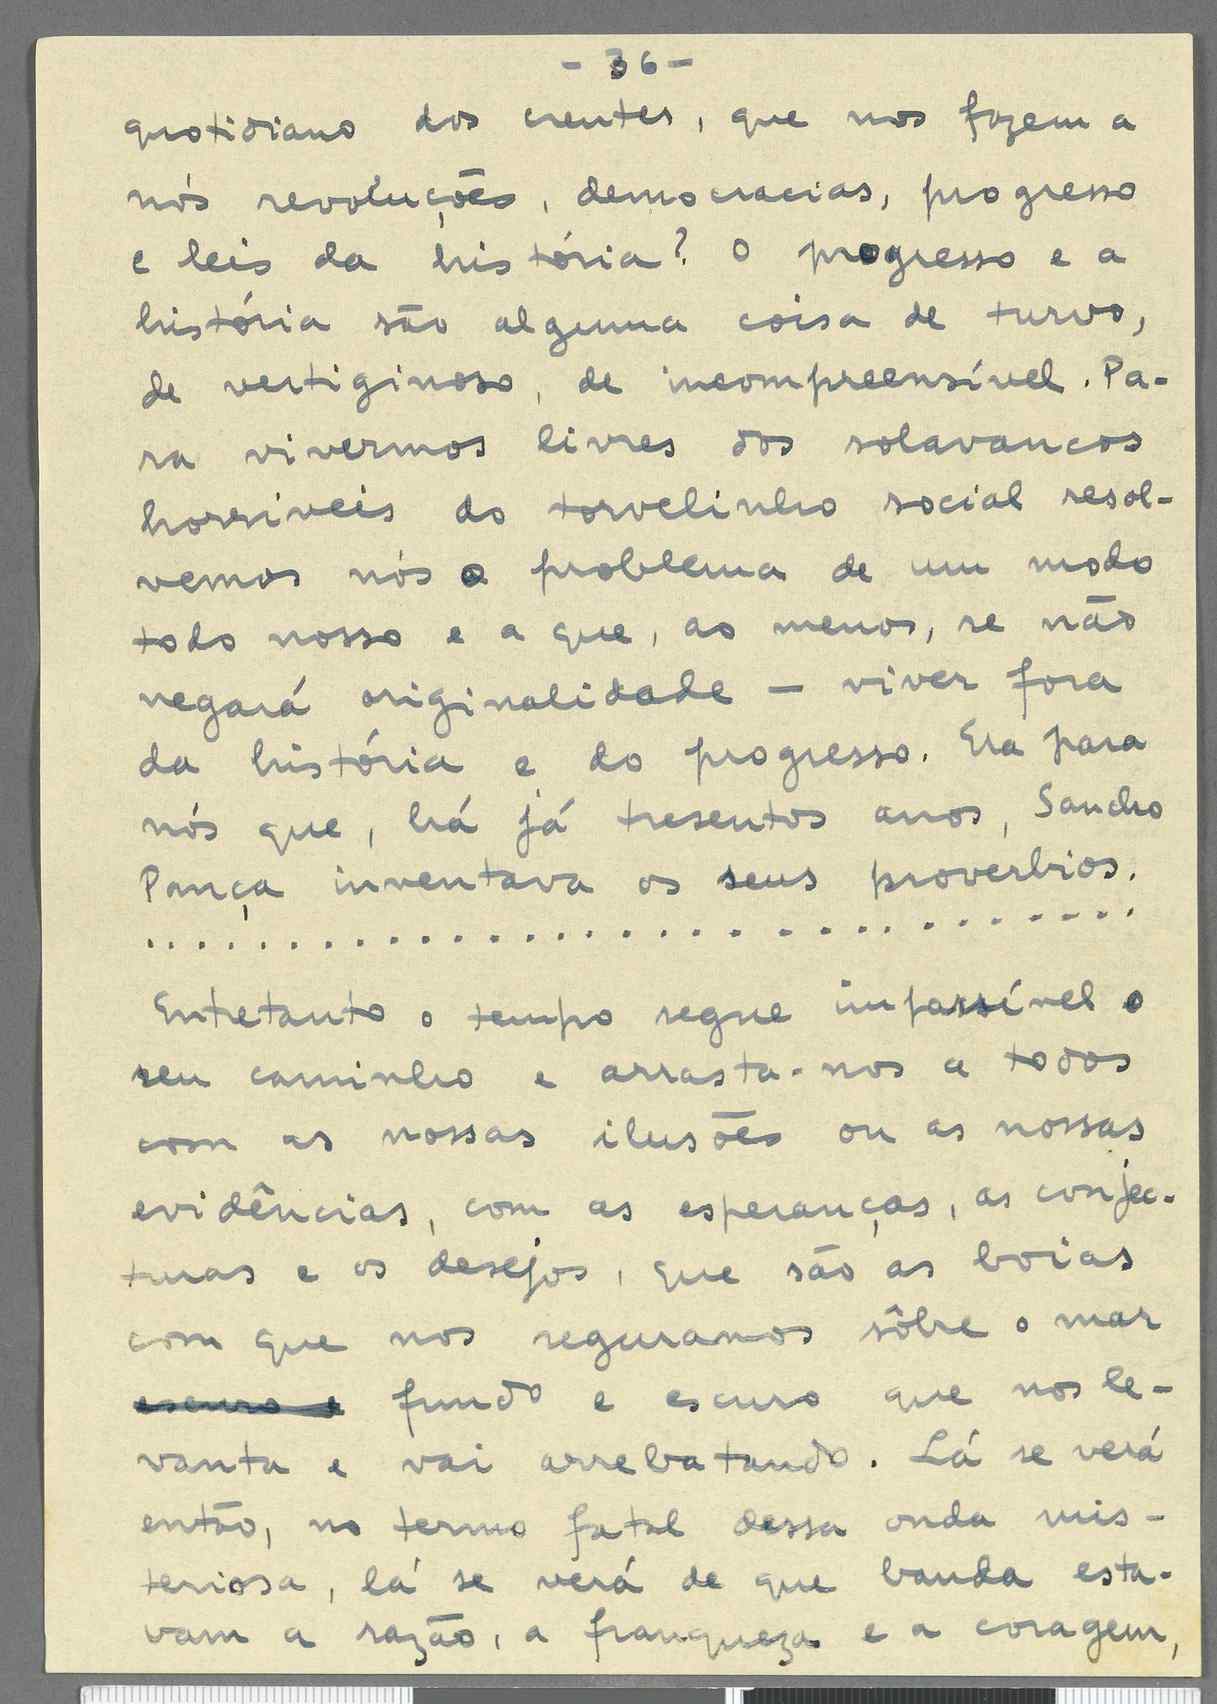 - 36 -
quotidiano dos crentes, que nos fazem a
nós revoluções, democracias, progresso
e leis da história? O progresso e a
história são alguma coisa de turvo,
de vertiginoso, de incompreensível. Pa-
ra vivermos livres dos solavancos
horríveis do torvelinho social resol-
vemos nós o problema de um modo
todo nosso e a que, ao menos, se não
negará originalidade — viver fora
da história e do progresso. Era para
nós que, há já tresentos anos, Sancho
Pança inventava os seus proverbios.
. . . . . . . . . . . . . . . . . . . . . . . . . . . . . .
Entretanto o tempo segue impassível o
seu caminho e arrasta-nos a todos
com as nossas ilusões ou as nossas
evidências, com as esperanças, as conjec-
turas e os desejos, que são as boias
com que nos seguramos sôbre o mar
escuro e fundo e escuro que nos le-
vanta e vai arrebatando. Lá se verá
então, no termo fatal dessa onda mis-
teriosa, lá se verá de que banda esta-
vam a razão, a franqueza e a coragem,